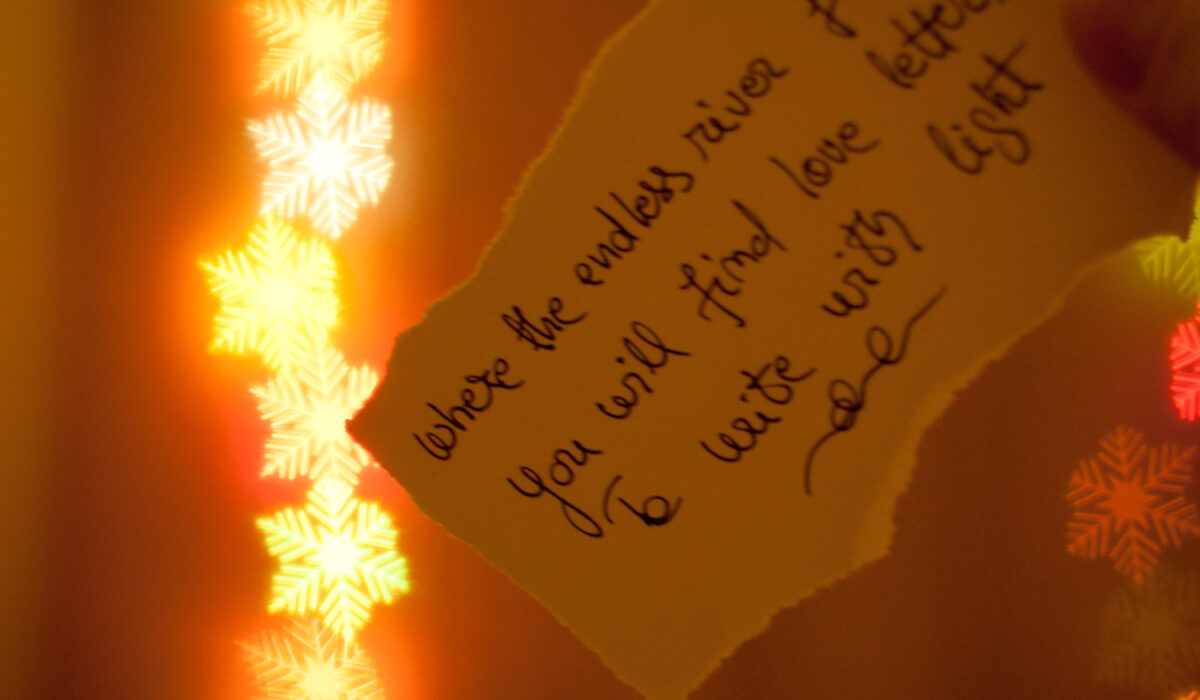 where the endless river
you will find love letters
To write with light